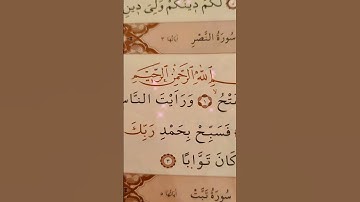 لَكُمْ دِينُكُمْ وَلِيَ دِينِ
سُورَةُ النَّصْرِ
اللَّهِ الرَّحْمَٰنِ الرَّحِيمِ
وَرَأَيْتَ النَّاسَ
فَسَبِّحْ بِحَمْدِ رَبِّكَ
كَانَ تَوَّابًا
سُورَةُ تَبَّتْ